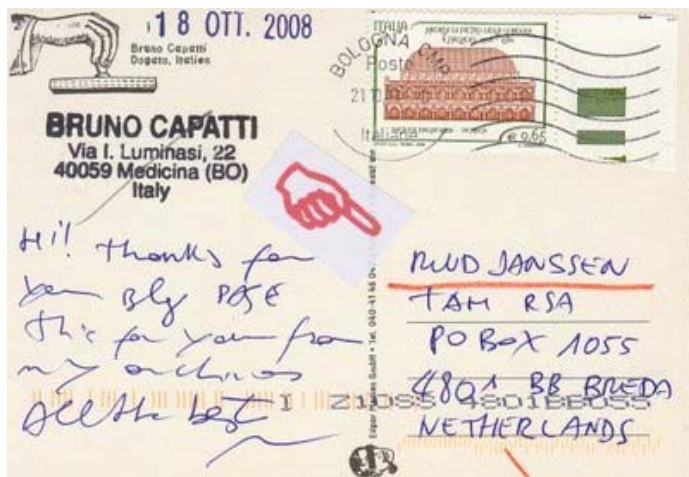 18 OTT. 2008
Bruno Capatti
Dogato, Italien
BRUNO CAPATTI
Via I. Luminasi, 22
40059 Medicina (BO)
Italy
ITALIA
BOLOGNA CMP
Poste
Italiane
€ 0,65
Hi! thanks for
your Blog PAGE
this for you from
my archives
All the best
RUUD JANSSEN
TAM RSA
PO BOX 1055
4801 BB BREDA
NETHERLANDS
Z1055 4801BB055